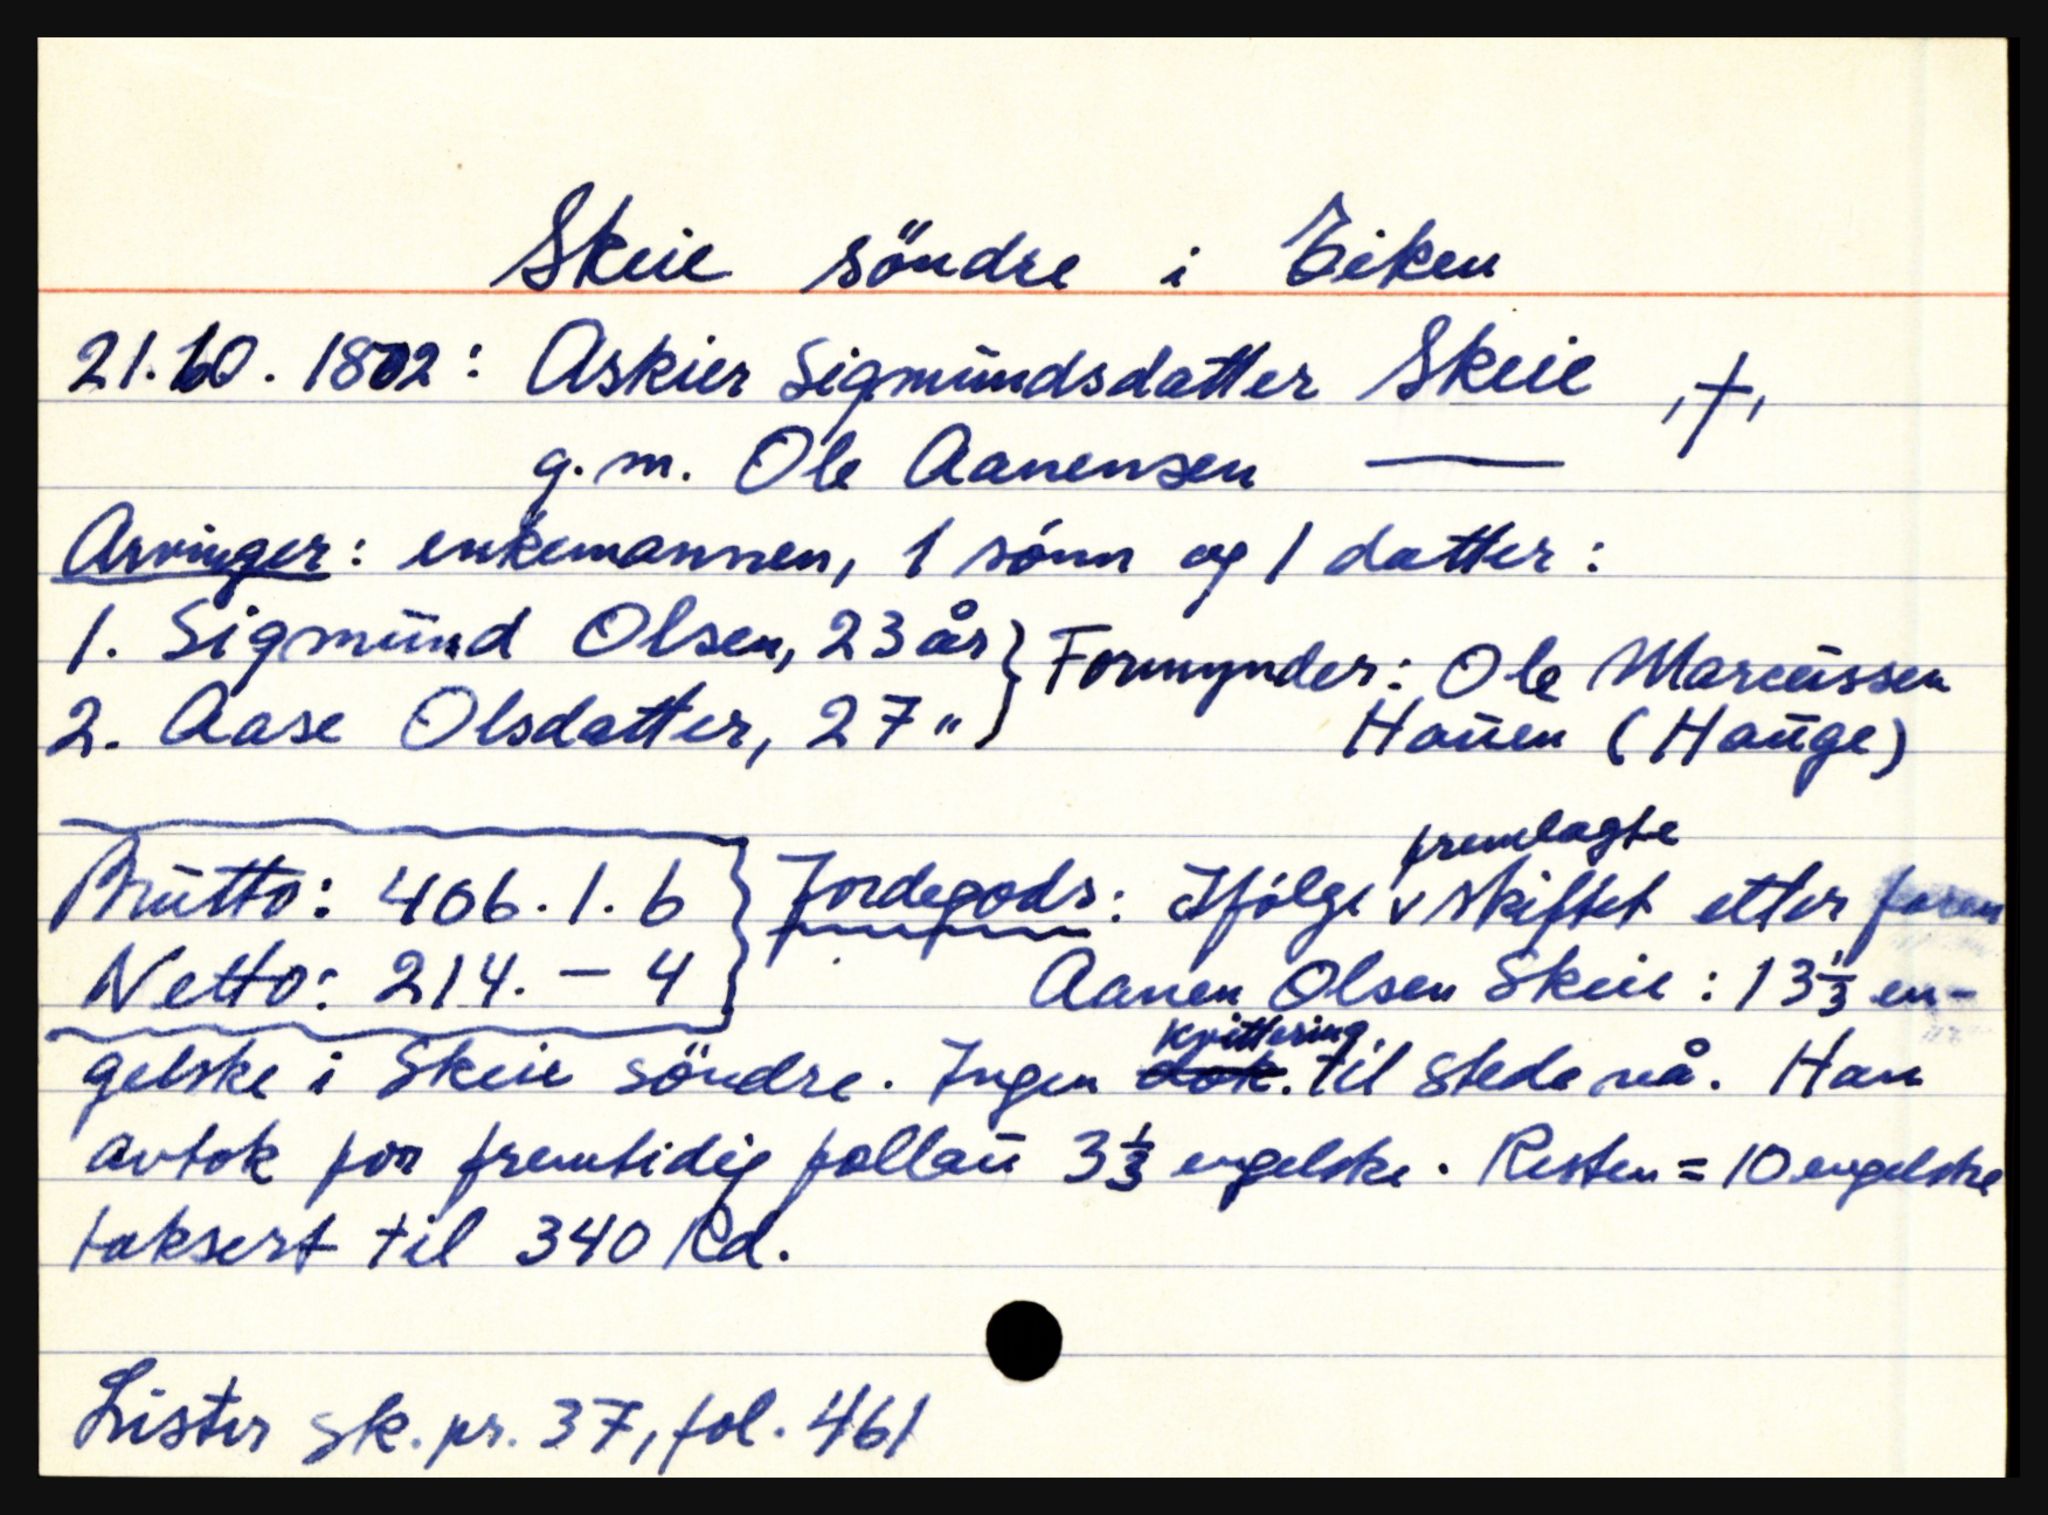 Skeie söndre i Eiken
21.10.1802: Askier Sigmundsdatter Skeie ,†,
g.m. Ole Aanensen —
Arvinger: enkemannen, 1 sønn og 1 datter:
1. Sigmund Olsen, 23 år } Formynder: Ole Marcussen
2. Aase Olsdatter, 27 " } Hauen (Hauge)
Brutto: 406.1.6 } Jordegods: Ifølge fremlagte skiftet etter
Netto: 214. – 4 } Aanen Olsen Skeie: 13 1/3 en-
gelske i Skeie söndre. Ingen kvittering til stede nå. Han
avtok for fremtidig follau 3 1/3 engelske. Resten = 10 engelske
taksert til 340 Rd.
Lister sk.pr. 37, fol. 461